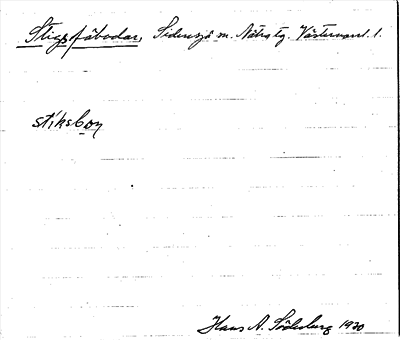 Stigsfäbodar, Sidensjö sn. Nätra tg. Västernorrl. l.
stiksbon
Hans A. Söderberg 1930